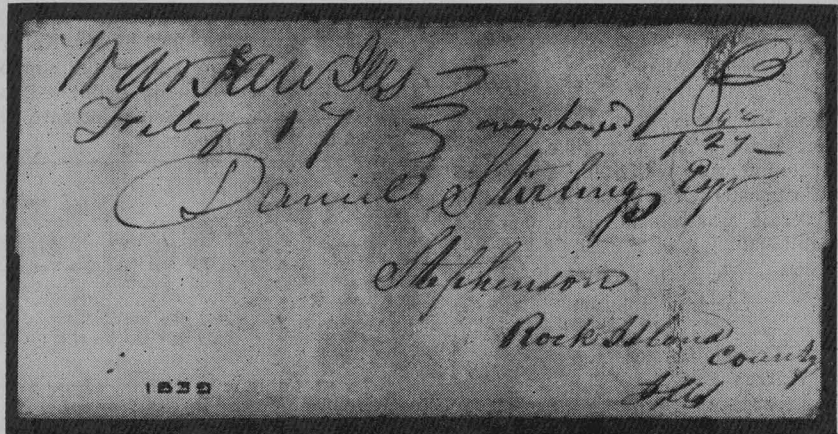 Warsaw Ills
Feby 17 overcharged
Daniel Stirling Esqr
Stephenson
Rock Island
County
Ills
1839